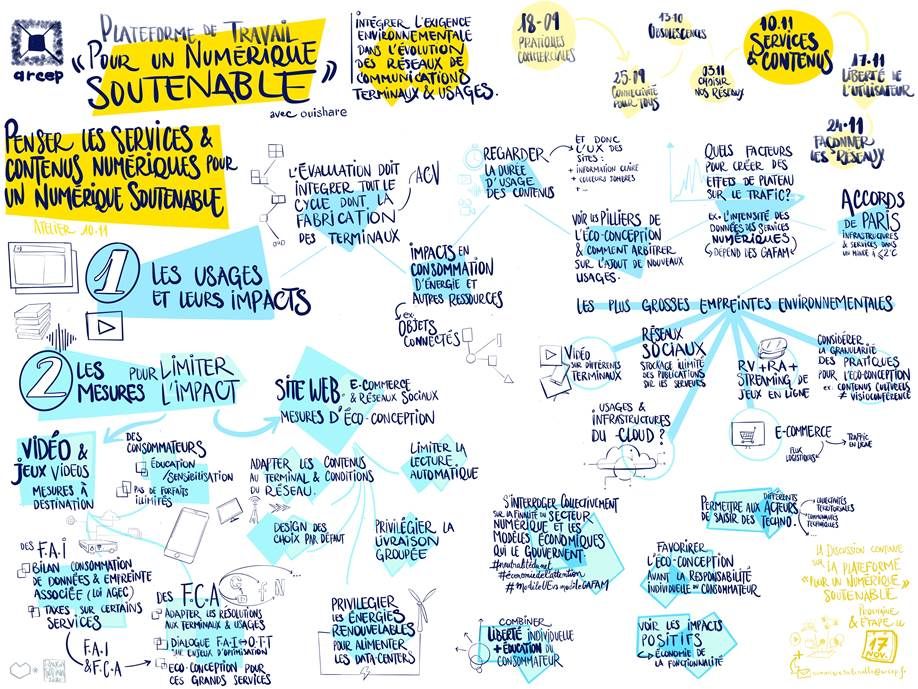 arcep
PLATEFORME DE TRAVAIL
« POUR UN NUMÉRIQUE
SOUTENABLE »
INTÉGRER L'EXIGENCE
ENVIRONNEMENTALE
DANS L'ÉVOLUTION
DES RÉSEAUX DE
COMMUNICATIONS
TERMINAUX & USAGES.
avec ouishare
18-09
PRATIQUES
COMMERCIALES
25-09
CONNECTIVITÉ
POUR TOUS
13-10
OBSOLESCENCES
03.11
CHOISIR
NOS RÉSEAUX
10.11
SERVICES
& CONTENUS
17-11
LIBERTÉ DE
L'UTILISATEUR
24-11
FAÇONNER
LES RÉSEAUX
PENSER LES SERVICES &
CONTENUS NUMÉRIQUES POUR
UN NUMÉRIQUE SOUTENABLE
ATELIER 10.11
1 LES USAGES
ET LEURS IMPACTS
L'ÉVALUATION DOIT
INTEGRER TOUT LE
CYCLE DONT LA
FABRICATION
DES TERMINAUX
ACV
IMPACTS EN
CONSOMMATION
D'ÉNERGIE ET
AUTRES RESSOURCES
ex.
OBJETS
CONNECTÉS
REGARDER
LA DURÉE
D'USAGE
DES CONTENUS
ET DONC
L'UX DES
SITES :
+ INFORMATION CLAIRE
+ COULEURS SOMBRES
+ ...
VOIR LES PILLIERS DE
L'ÉCO-CONCEPTION
& COMMENT ARBITRER
SUR L'AJOUT DE NOUVEAUX
USAGES.
QUELS FACTEURS
POUR CRÉER DES
EFFETS DE PLATEAU
SUR LE TRAFIC?
EX. L'INTENSITÉ DES
DONNÉES DES SERVICES
NUMÉRIQUES
DÉPEND DES GAFAM
ACCORDS
DE PARIS
INFRASTRUCTURES
& SERVICES DANS
UN MONDE À ≤2°C
LES PLUS GROSSES EMPREINTES ENVIRONNEMENTALES
VIDÉO
SUR DIFFÉRENTS
TERMINAUX
RÉSEAUX
SOCIAUX
STOCKAGE ILLIMITÉ
DES PUBLICATIONS
SUR LES SERVEURS
RV + RA +
STREAMING DE
JEUX EN LIGNE
CONSIDÉRER
LA GRANULARITÉ
DES PRATIQUES
POUR L'ECO-CONCEPTION
ex. CONTENUS CULTURELS
≠ VISIOCONFÉRENCE
USAGES &
INFRASTRUCTURES
DU CLOUD ?
E-COMMERCE
FLUX
LOGISTIQUES
TRAFFIC
EN LIGNE
2 LES MESURES POUR LIMITER
L'IMPACT
SITE WEB E-COMMERCE
& RÉSEAUX SOCIAUX
MESURES D'ÉCO-CONCEPTION
VIDÉO &
JEUX VIDEOS
MESURES À
DESTINATION
DES
CONSOMMATEURS
ÉDUCATION
/SENSIBILISATION
PAS DE FORFAITS
ILLIMITÉS
ADAPTER LES CONTENUS
AU TERMINAL & CONDITIONS
DU RÉSEAU.
LIMITER LA
LECTURE
AUTOMATIQUE
DESIGN DES
CHOIX PAR DÉFAUT
PRIVILÉGIER LA
LIVRAISON
GROUPÉE
DES F.A.I
BILAN CONSOMMATION
DE DONNÉES & EMPREINTE
ASSOCIÉE (LOI AGEC)
TAXES SUR CERTAINS
SERVICES
F.A.I
& F.C.A
DES F.C.A
ADAPTER LES RÉSOLUTIONS
AUX TERMINAUX & USAGES
DIALOGUE F.A.I ↔ O.T.T
UN ENJEUX D'OPTIMISATION
ECO-CONCEPTION POUR
CES GRANDS SERVICES
PRIVILEGIER
LES ÉNERGIES
RENOUVELABLES
POUR ALIMENTER
LES DATA-CENTERS
S'INTERROGER COLLECTIVEMENT
SUR LA FINALITÉ DU SECTEUR
NUMÉRIQUE ET LES
MODÈLES ÉCONOMIQUES
QUI LE GOUVERNENT.
#neutralitédunet
#économiedel'attention
#modèleUEvsmodèleGAFAM
PERMETTRE AUX DIFFÉRENTS ACTEURS
DE SAISIR DES TECHNO.
COLLECTIVITÉS
TERRITORIALES
COMMUNAUTÉS
TECHNIQUES
...
FAVORIRER
L'ÉCO-CONCEPTION
AVANT LA RESPONSABILITÉ
INDIVIDUELLE DU CONSOMMATEUR
COMBINER
LIBERTÉ INDIVIDUELLE
+ ÉDUCATION DU
CONSOMMATEUR
VOIR LES IMPACTS
POSITIFS
ÉCONOMIE DE
LA FONCTIONNALITÉ
LA DISCUSSION CONTINUE
SUR LA PLATEFORME
« POUR UN NUMÉRIQUE
SOUTENABLE »
PROCHAINE
ÉTAPE LE
17
NOV.